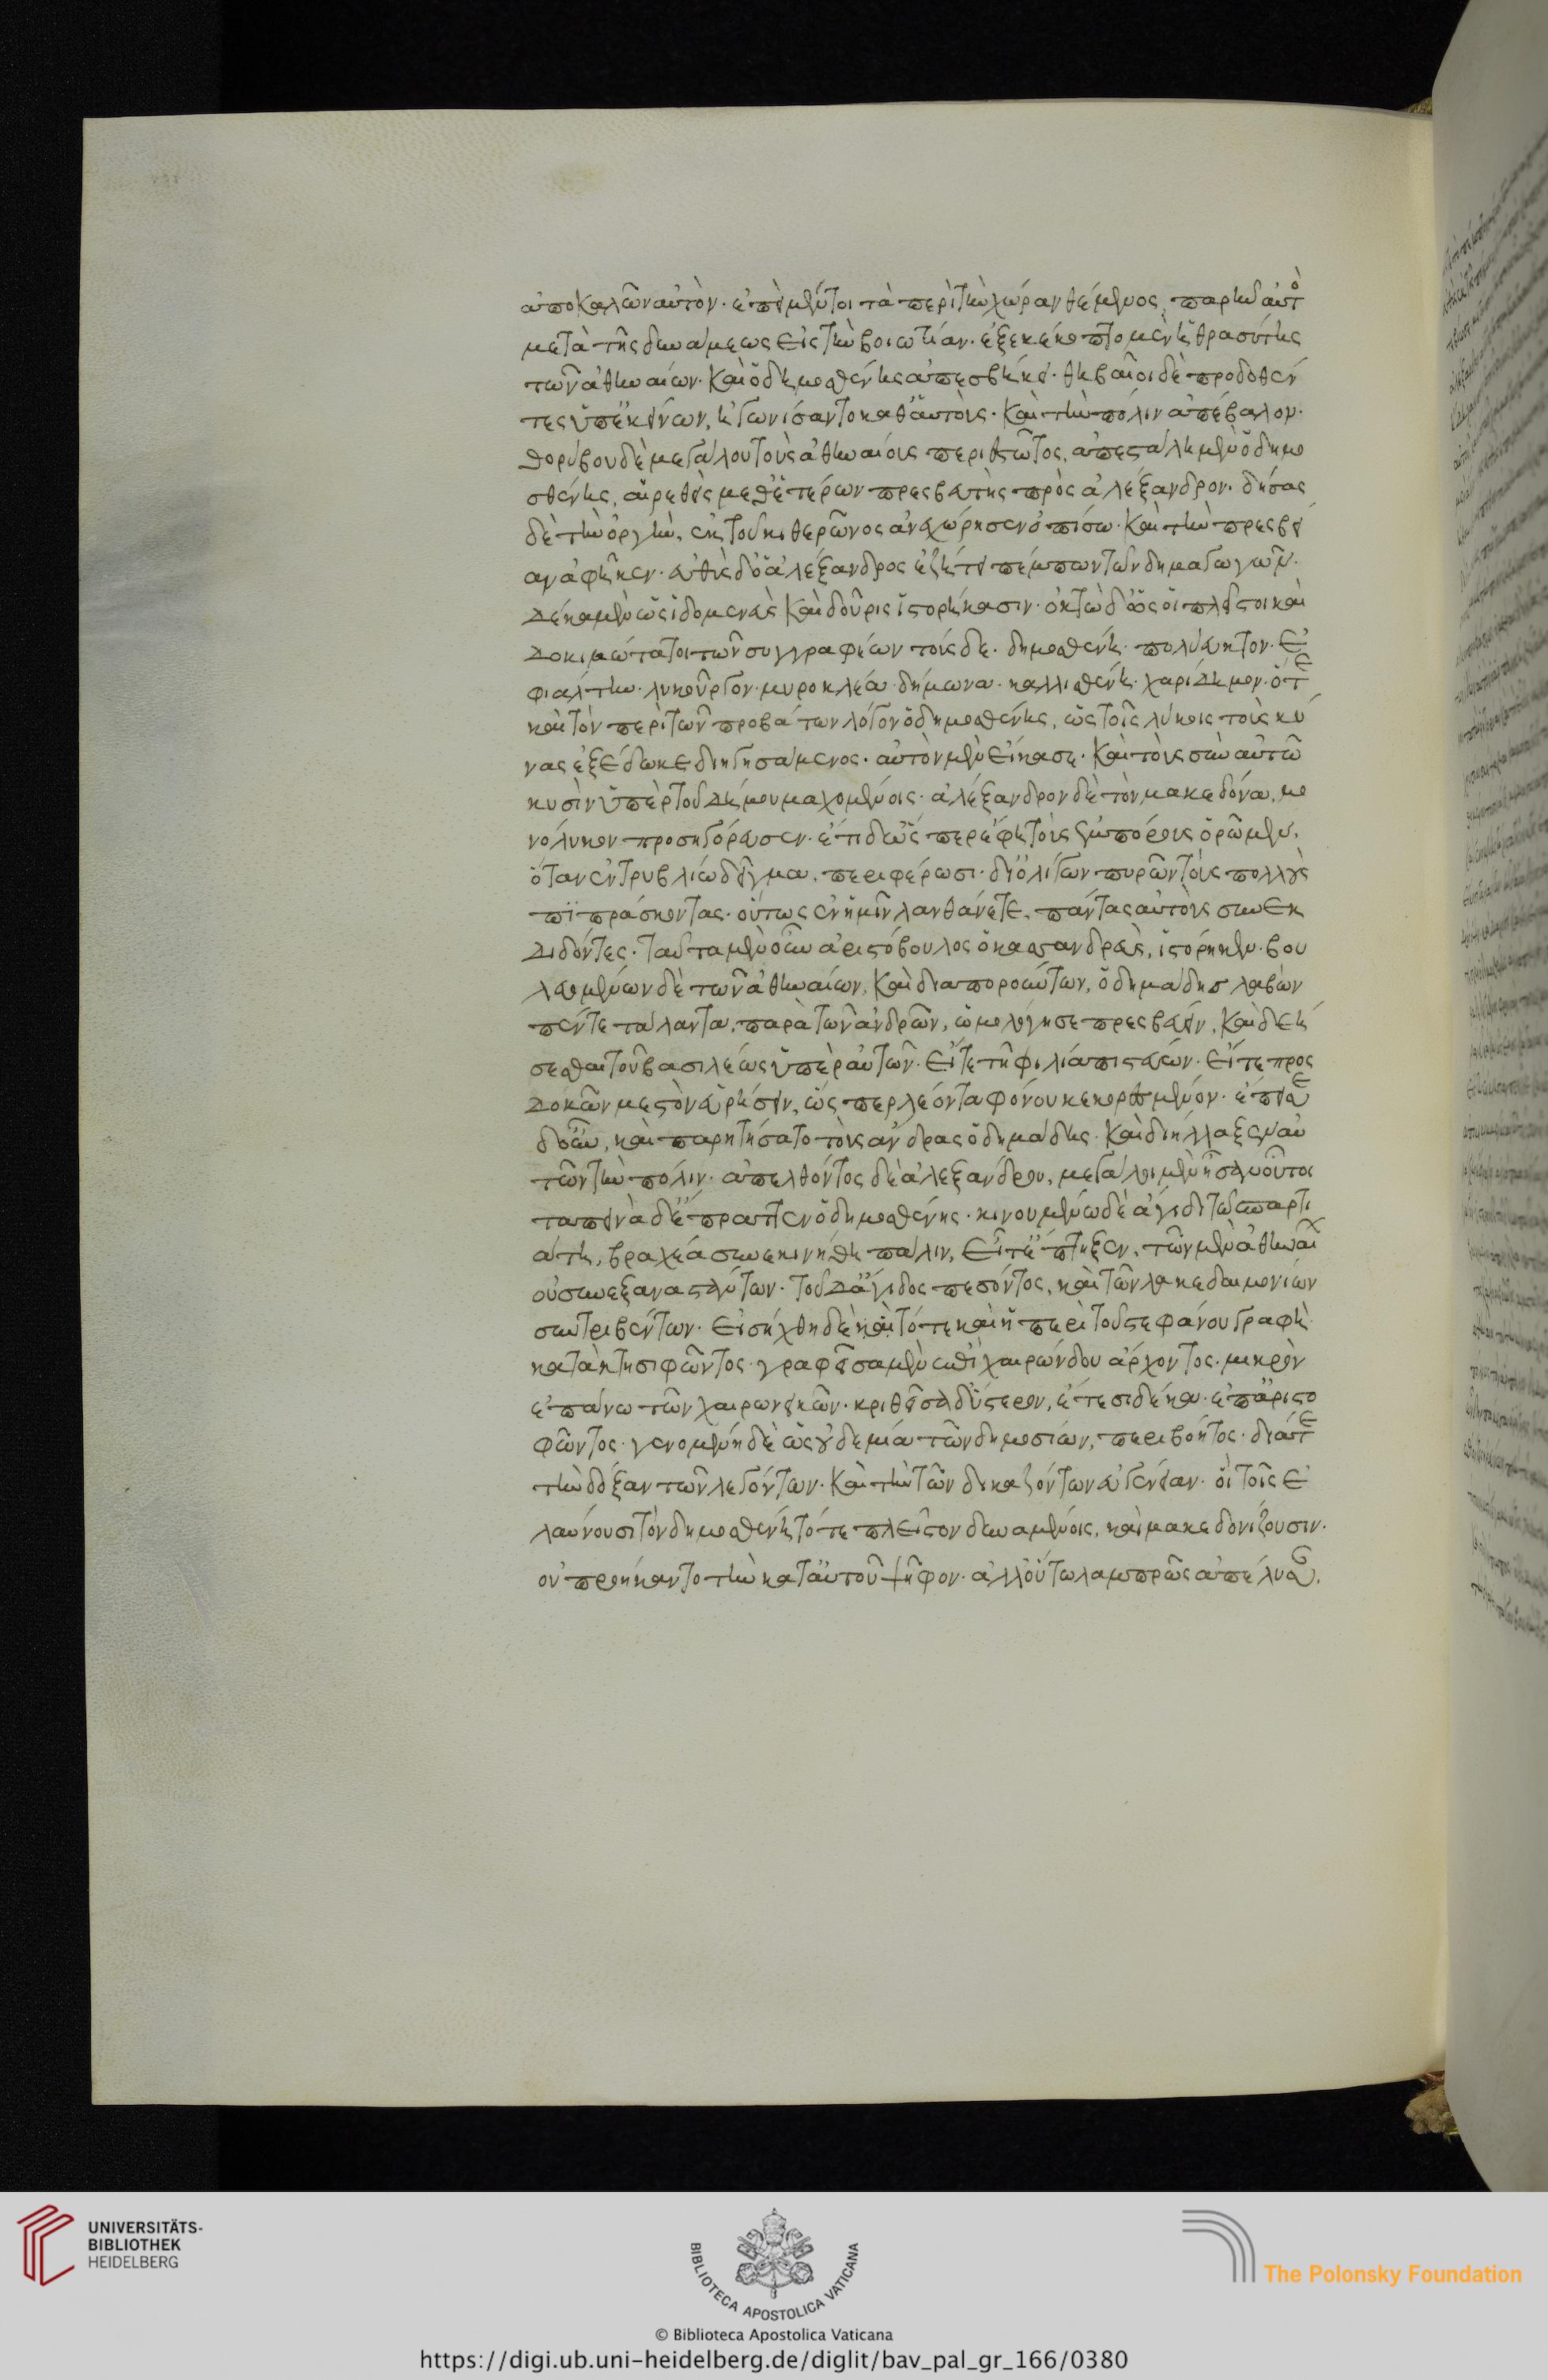 ἀποκαλῶν αὐτὸν. ἐπεὶ μέντοι τὰ περὶ τὴν χώραν θέμενος, παρῆν αὐτὸς
μετὰ τῆς δυνάμεως εἰς τὴν βοιωτίαν. ἐξεκέκοπτο μὲν ἡ θρασύτης
τῶν ἀθηναίων. καὶ ὁ δημοσθένης ἀπεσβήκει. θηβαῖοι δὲ προδοθέν
τες ὑπ' ἐκείνων, ἠγωνίσαντο καθ' αὑτοὺς. καὶ τὴν πόλιν ἀπέβαλον.
θορύβου δὲ μεγάλου τοὺς ἀθηναίους περιεστῶτος, ἀπεστάλη μὲν ὁ δημο
σθένης, αἱρεθεὶς μεθ' ἑτέρων πρεσβευτὴς πρὸς ἀλέξανδρον. δείσας
δὲ τὴν ὀργὴν, ἐκ τοῦ κιθερῶνος ἀνεχώρησεν ὀπίσω. καὶ τὴν πρεσβεί
αν ἀφῆκεν. εὐθὺς δ' ὁ ἀλέξανδρος ἐζήτει πέμπων τῶν δημαγωγῶν.
δέκα μὲν ὡς ἰδομενεὺς καὶ δοῦρις ἱστορήκασιν. ὀκτὼ δ' ὡς οἱ πλεῖστοι καὶ
δοκιμώτατοι τῶν συγγραφέων τούσδε. δημοσθένη. πολύευκτον. ἐ
φιάλτην. λυκοῦργον. μυροκλέα. δήμωνα. καλλισθένη. χαρίδημον. ὅτε
καὶ τὸν περὶ τῶν προβάτων λόγον ὁ δημοσθένης, ὡς τοῖς λύκοις τοὺς κύ
νας ἐξέδωκε διηγησάμενος. αὑτὸν μὲν εἴκασε. καὶ τοὺς σὺν αὑτῶ
κυσὶν ὑπὲρ τοῦ δήμου μαχομένοις. ἀλέξανδρον δὲ τὸν μακεδόνα, μο
νόλυκον προσηγόρευσεν. ἔτι δ' ὥσπερ ἔφη τοὺς ἐμπόρους ὁρῶμεν.
ὅταν ἐν τρυβλίω δεῖγμα, περιφέρωσι. δι' ὀλίγων πυρῶν τοὺς πολλοὺς
πιπράσκοντας. οὕτως ἐν ἡμῖν λανθάνετε, πάντας αὑτοὺς συνεκ
διδόντες. ταῦτα μὲν οὖν ἀριστόβουλος ὁ κασανδρεὺς, ἱστόρηκεν. βου
λευομένων δὲ τῶν ἀθηναίων, καὶ διαπορούντων, ὁ δημάδης λαβὼν
πέντε τάλαντα, παρὰ τῶν ἀνδρῶν, ὡμολόγησε πρεσβεύειν, καὶ δεή
σεσθαι τοῦ βασιλέως ὑπὲρ αὐτῶν. εἴτε τῆ φιλία πιστεύων. εἴτε προς
δοκῶν μεστὸν εὑρήσειν, ὥσπερ λέοντα φόνου κεκορεσμένον. ἔπεισε
δ' οὖν, καὶ παρητήσατο τοὺς ἄνδρας ὁ δημάδης. καὶ διήλλαξεν αὐ
τῶν τὴν πόλιν. ἀπελθόντος δὲ ἀλεξάνδρου, μεγάλοι μὲν ἦσαν οὗτοι
ταπεινὰ δ' ἔπραττεν ὁ δημοσθένης. κινουμένω δὲ ἄγιδι τῶ σπαρτι
άτη, βραχέα συνεκινήθη πάλιν, εἶτ' ἔπτηξεν, τῶν μὲν ἀθηναίων
οὐ συνεξαναστάντων. τοῦ δ' ἄγιδος πεσόντος, καὶ τῶν λακεδαιμονίων
συντριβέντων. εἰσήχθη δὲ καὶ τότε καὶ ἡ περὶ τοῦ στεφάνου γραφὴ
κατὰ κτησιφῶντος. γραφεῖσα μὲν ἐπὶ χαιρώνδου ἄρχοντος. μικρὸν
ἐπάνω τῶν χαιρωνεικῶν. κριθεῖσα δ' ὕστερον, ἔτεσι δέκα. ἐπ' ἀριστο
φῶντος. γενομένη δὲ ὡς οὐδεμία τῶν δημοσίων, περιβόητος. διά τε
τὴν δόξαν τῶν λεγόντων. καὶ τὴν τῶν δικαζόντων εὐγένειαν. οἳ τοῖς ἐ
λαύνουσι τὸν δημοσθένη τότε πλεῖστον δυναμένοις, καὶ μακεδονίζουσιν.
οὐ προήκαντο τὴν κατ' αὐτοῦ ψῆφον. ἀλλ' οὕτω λαμπρῶς ἀπέλυσαν,
UNIVERSITÄTS-
BIBLIOTHEK
HEIDELBERG
BIBLIOTECA APOSTOLICA VATICANA
The Polonsky Foundation
© Biblioteca Apostolica Vaticana
https://digi.ub.uni-heidelberg.de/diglit/bav_pal_gr_166/0380